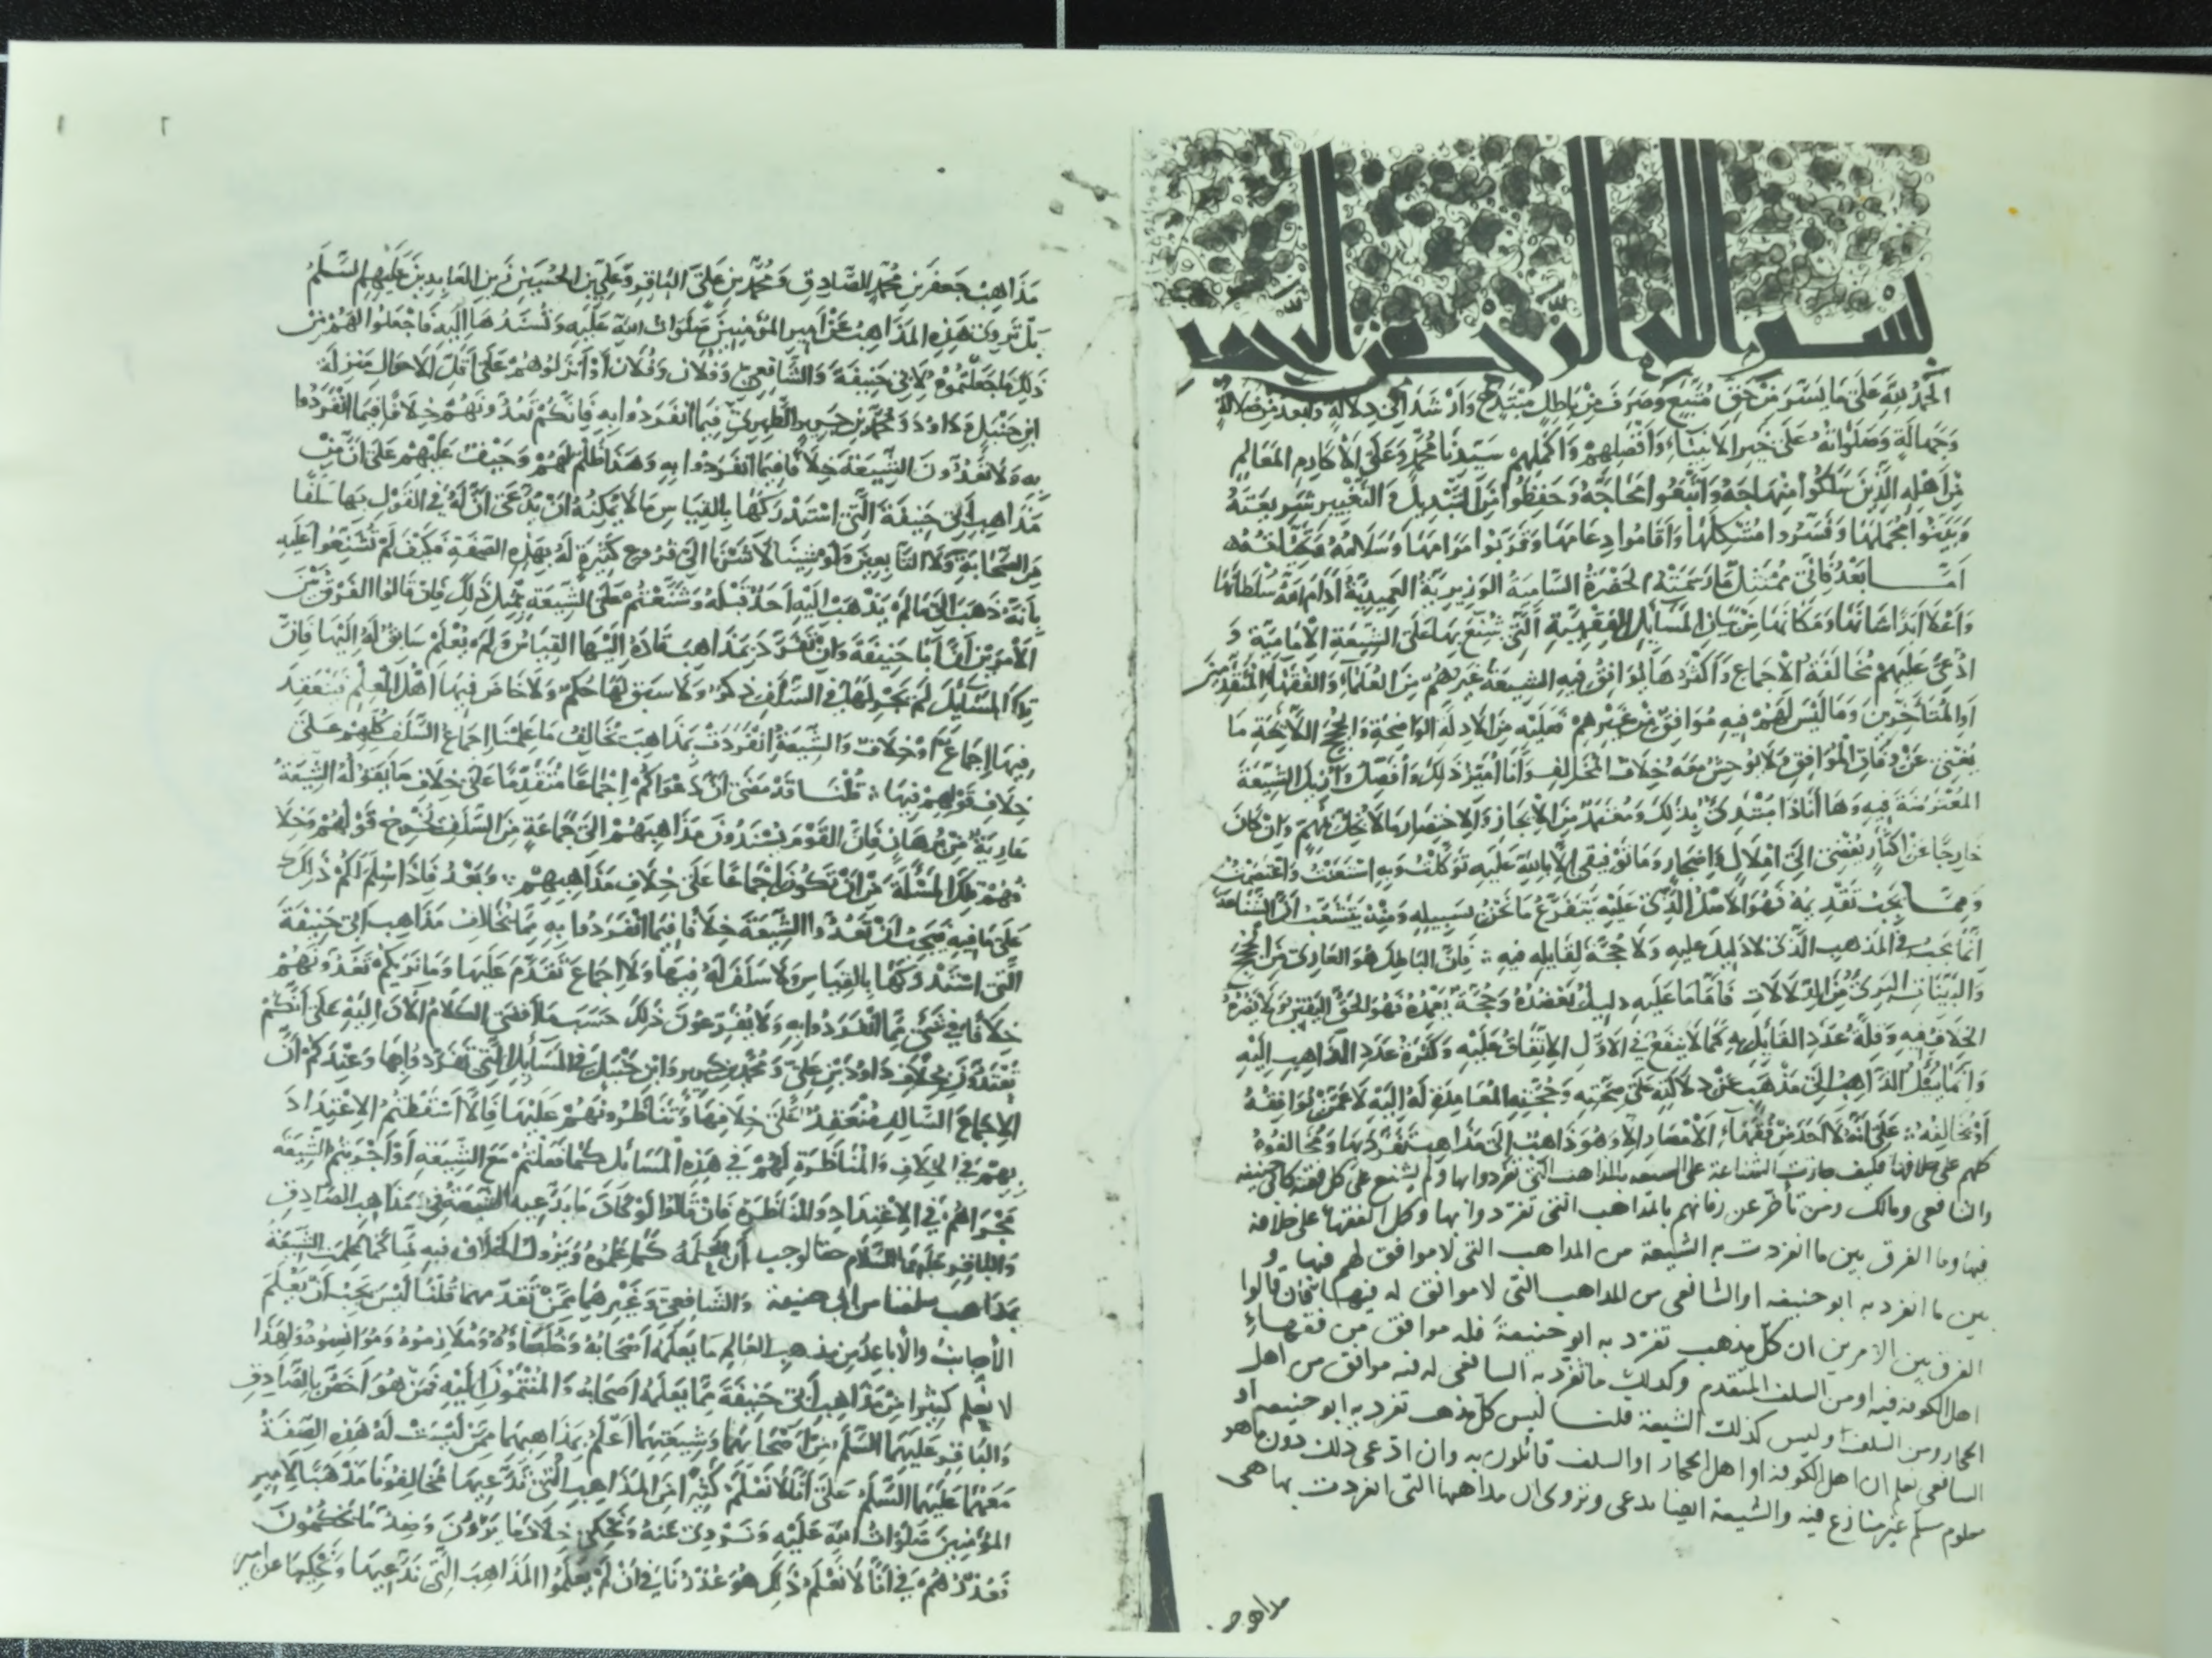 بسم الله الرحمن الرحيم
الحمد لله على ما يسر من حق متبع وصرف من باطل مبتدع وارشد الى دلالة وابعد من ضلالة
وجهالة وصلواته على خير الانبياء وافضلهم واكملهم سيدنا محمد وعلى الاكارم المعالم
من اهله الذين سلكوا منهاجه واتبعوا محاجه وحفظوا من التبديل والتغيير شريعته
وبينوا مجملها وفسروا مشكلها واقاموا دعامها وقربوا مرامها وسلامه وتحياته
اما بعد فانى ممتثل ما رسمته الحضرة السامية الوزيرية العميدية ادام الله سلطانها
واعلا ابدا شانها ومكانها من بيان المسايل الفقهية التى شنع بها على الشيعة الامامية و
ادعى عليهم مخالفة الاجماع واكثرها يوافق فيه الشيعة غيرهم من العلماء والفقهاء المتقدمين
او المتاخرين وما ليس لهم فيه موافق من غيرهم فعليه من الادلة الواضحة والحجج اللايحة ما
يغنى عن وفاق الموافق ولا يوحش معه خلاف المخالف وانا امير ذلك وافصله وازيل الشبهة
المعترضة فيه وها انا ذا مبتدئ بذلك ومعتمد من الايجاز والاختصار ما لا يخل بمهم وان كان
خارجا عن اكثار يفضى الى املال واضجار وما توفيقى الا بالله عليه توكلت وبه استعنت واعتصمت
ومما يجب تقديمه فهو الاصل الذى عليه يتفرع ما نحن بسبيله ومنه يتشعب ان الشناعة
انما يجب فى المذهب الذى لا دليل عليه ولا حجة لقايله فيه ؛ فان الباطل هو العارى من الحجج
والبينات البرئ من الدلالات فاما ما عليه دليل يعضده وحجة يعمده فهو الحق اليقين ولا يضره
الخلاف فيه وقلة عدد القايل به كما لا ينفع فى الاول الاتفاق عليه وكثرة عدد الذاهب اليه
وانما يسئل الذاهب الى مذهب عن دلالته على صحته وحجته القايدة له اليه لا عمن يوافقه
او يخالفه ؛ على انه لا احد من فقهاء الامصار الا وهو ذاهب الى مذاهب تفرد بها ومخالفوه
كلهم على خلافها فكيف جازت الشناعة على الشيعة بالمذاهب التى تفردوا بها ولم يشنع على كل فقيه كابى حنيفه
والشافعى ومالك ومن تاخر عن زمانهم بالمذاهب التى تفردوا بها وكل الفقهاء على خلافه
فيها وما الفرق بين ما انفردت به الشيعة من المذاهب التى لا موافق لهم فيها و
بين ما انفرد به ابو حنيفه او الشافعى من المذاهب التى لا موافق له فيها فان قالوا
الفرق بين الامرين ان كل مذهب تفرد به ابو حنيفة فله موافق من فقهاء
اهل الكوفة فيه او من السلف المتقدم وكذلك ما تفرد به الشافعى له فيه موافق من اهل
الحجاز ومن السلف وليس كذلك الشيعة قلنا ليس كل مذهب تفرد به ابو حنيفه او
الشافعى يعلم ان اهل الكوفة او اهل الحجاز او السلف قائلون به وان ادعى ذلك دون ما هو
معلوم مسلم غير منازع فيه والشيعة ايضا تدعى وتروى ان مذاهبها التى انفردت بها هى
مذاهب
مذاهب جعفر بن محمد الصادق ومحمد بن على الباقر وعلى بن الحسين زين العابدين عليهم السلم
بل تروى هذه المذاهب عن امير المؤمنين صلوات الله عليه وتسندها اليه فاجعلوا لهم من
ذلك ما جعلتموه لابى حنيفة والشافعى وفلان وفلان او انزلوهم على اقل الاحوال منزلة
ابن حنبل وداود ومحمد بن جرير الطبرى فيما انفردوا به فانكم تعدونهم خلافا فيما انفردوا
به ولا تعدون الشيعة خلافا فيما انفردوا به وهذا ظلم لهم وحيف عليهم على ان من
مذاهب ابى حنيفة التى استدركها بالقياس ما لا يمكنه ان يدعى ان له فى القول بها سلفا
من الصحابة ولا التابعين ولو شينا لاشرنا الى فروع كثيرة له بهذه الصفة فكيف لم تشنعوا عليه
بانه ذهب الى ما لم يذهب اليه احد قبله وشنعتم على الشيعة بمثل ذلك فان قالوا الفرق بين
الامرين ان ابا حنيفة وان تفرد بمذاهب قاده اليها القياس ولم يعلم سابق له اليها فان
تلك المسايل لم يجر لها فى السلف ذكر ولا سبق لها حكم ولا خاض فيها اهل العلم فينعقد
فيها اجماع او خلاف والشيعة انفردت بمذاهب تخالف ما علمنا اجماع السلف كلهم على
خلاف قولهم فيها ؛ قلنا قد مضى ان دعواكم اجماعا متقدما على خلاف ما يقوله الشيعة
عارية من برهان فان القوم يسندون مذاهبهم الى جماعة من السلف يخرج قولهم وخلا
فهم تلك المسئلة من ان تكون اجماعا على خلاف مذاهبهم ؛ وبعد فاذا سلم لكم ذلك
على ما فيه فيجب ان تعدوا الشيعة خلافا فيما انفردوا به مما يخالف مذاهب ابى حنيفة
التى استدركها بالقياس ولا سلف له فيها ولا اجماع تقدم عليها وما نريكم تعدونهم
خلافا فى شئ مما انفردوا به ولا يفرعون ذلك حسب ما افضى الكلام الان اليه على انكم
تعتدون بخلاف داود بن على ومحمد بن جرير وابن حنبل فى المسايل التى تفردوا بها وعندكم ان
الاجماع السالف منعقد على خلافها وتناظرونهم عليها فالا اسقطتم الاعتداد
بهم فى الخلاف والمناظرة لهم فى هذه المسائل كما فعلتم مع الشيعة او اجريتم الشيعة
مجراهم فى الاعتداد والمناظرة فان قالوا لو كان ما يدعيه الشيعة فى مذاهب الصادق
والباقر عليهما السلام حقا لوجب ان نعلمه كما علموه ويزول الخلاف فيه كما علمت الشيعة
بمذاهب سلفنا من ابى حنيفة والشافعى وغيرهما ممن تقدمهما قلنا ليس يجب ان يعلم
الاجانب والاباعد من مذهب العالم ما يعلمه اصحابه وخلصاؤه وملازموه ومؤانسوه ولهذا
لا نعلم كثيرا من مذاهب ابى حنيفة مما يعلمه اصحابه والمنتمون اليه فمن هو اخص بالصادق
والباقر عليهما السلم من اصحابهما وشيعتهما اعلم بمذاهبهما ممن ليست له هذه الصفة
معهما عليهما السلم على انا لا نعلم كثيرا من المذاهب التى تدعيها مخالفونا مذهبا لامير
المؤمنين صلوات الله عليه ونروى عنه ونحكى خلاف ما يروون وضد ما يحكمون
فعذرهم فى انا لا نعلم ذلك هو عذرنا فى ان لم يعلموا المذاهب التى ندعيها ونحكيها عن امير